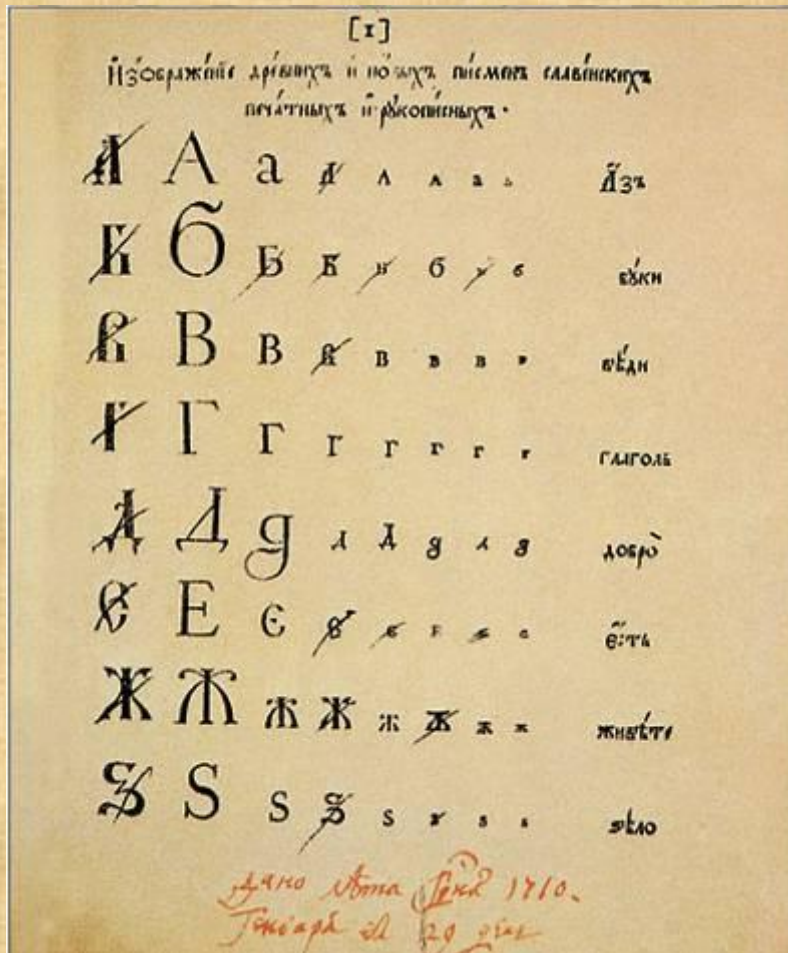 [1]
И҆зѡбраже́нїе дре́внихъ и҆ но́выхъ пи́сменъ славе́нскихъ
печа́тныхъ и҆ рꙋкопи́сныхъ.
А А а А А А а а А҆́зъ
Б Б Б Б Б б б б бꙋ́ки
В В В В В В В В вѣ́ди
Г Г Г Г Г Г Г Г глаго́ль
Д Д д Д Д д Д д добро̀
Є Е є Є є є є є є҆́сть
Ж Ж ж Ж ж Ж ж ж живѣ́те
Ѕ Ѕ ѕ Ѕ ѕ ѕ ѕ ѕ ѕѣлѡ̀
дано лѣта 1710.
Генваря 29 дня